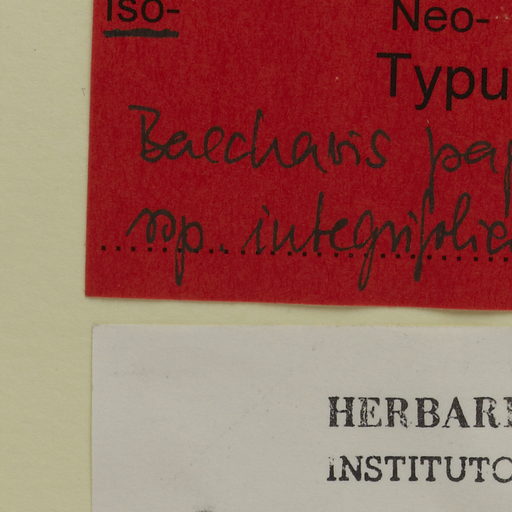 Iso- Neo-
Typu
Baccharis pap
ssp. integrifolia
HERBARI
INSTITUTO